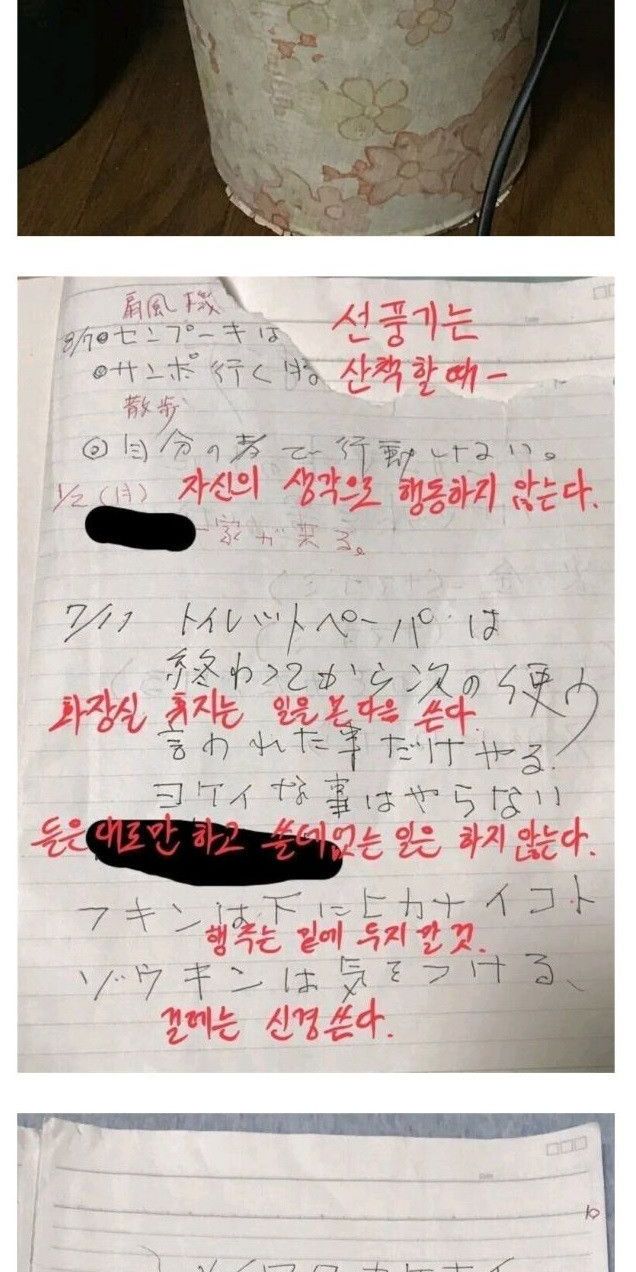 扇風機
8/7 ◎センプーキは
선풍기는
◎サンポ行く時
산책할 때-
散歩
◎自分の考で行動しない。
자신의 생각으로 행동하지 않는다.
1/2 (月)
一家が来る。
7/17 トイレットペーパーは
終わってから次の使う
화장실 휴지는 일을 본 다음 쓴다.
言われた事だけやる.
ヨケイな事はやらない
들은 대로만 하고 쓸데없는 일은 하지 않는다.
フキンは下にヒカナイコト
행주는 밑에 두지 말 것.
ゾウキンは気をつける、
걸레는 신경 쓴다.